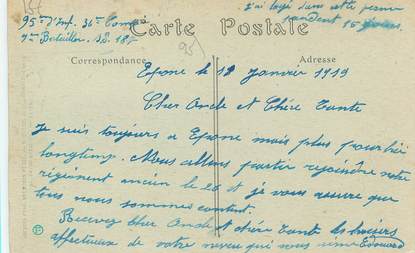 j'ai logé dans cette ferme
pendent 15 jours.
95e d'Inf. 36e Comp
7me Bataillon. SP. 185
Carte Postale
95
Correspondance
Adresse
Epone le 18 Janvier 1919
Cher Oncle et Chère Tante
Je suis toujours a Epone mais plus pour bien
longtemp. Nous allons partir rejoindre notre
régiment ancien le 26 et je vous assure que
tous nous sommes content.
Recevez Cher Oncle et chère tante les baisers
affectueux de votre neveu qui vous aime Edouard